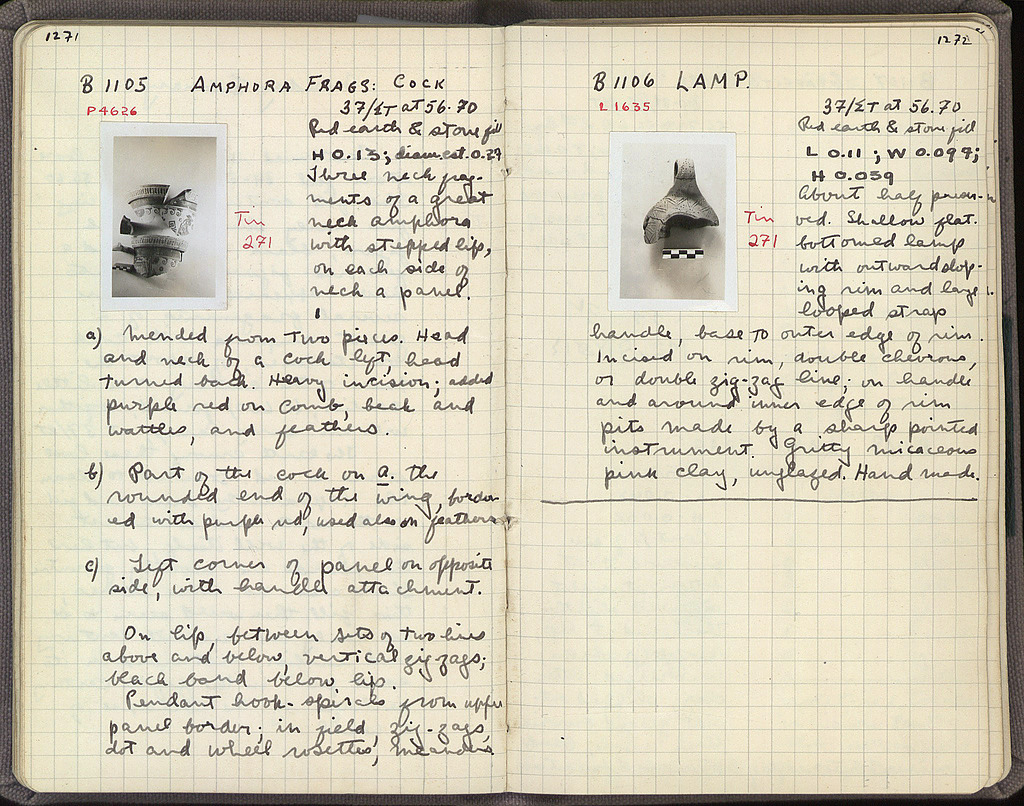 1271
B 1105 AMPHORA FRAGS: COCK
P 4626
37/ΣΤ at 56.70
Red earth & stone fill
H 0.13; diam. est. 0.27
Three neck frag-
ments of a great
neck amphora
with stepped lip,
on each side of
neck a panel.
Tin
271
a) Mended from two pieces. Head
and neck of a cock left, head
turned back. Heavy incision; added
purple red on comb, beak and
wattles, and feathers.
b) Part of the cock on a. the
rounded end of the wing, border-
ed with purple red, used also on feathers
c) Left corner of panel on opposite
side, with handle attachment.
On lip, between sets of two lines
above and below, vertical zigzags;
black band below lip.
Pendant hook-spirals from upper
panel border; in field, zig-zags,
dot and wheel rosettes, meanders
1272
B 1106 LAMP.
L 1635
37/ΣΤ at 56.70
Red earth & stone fill
L 0.11; W 0.097;
H 0.059
About half preser-
ved. Shallow flat-
bottomed lamp
with outward slop-
ing rim and large
looped strap
Tin
271
handle, base to outer edge of rim.
Incised on rim, double chevrons,
or double zig-zag line; on handle
and around inner edge of rim
pits made by a sharp pointed
instrument. Gritty micaceous
pink clay, unglazed. Hand made.